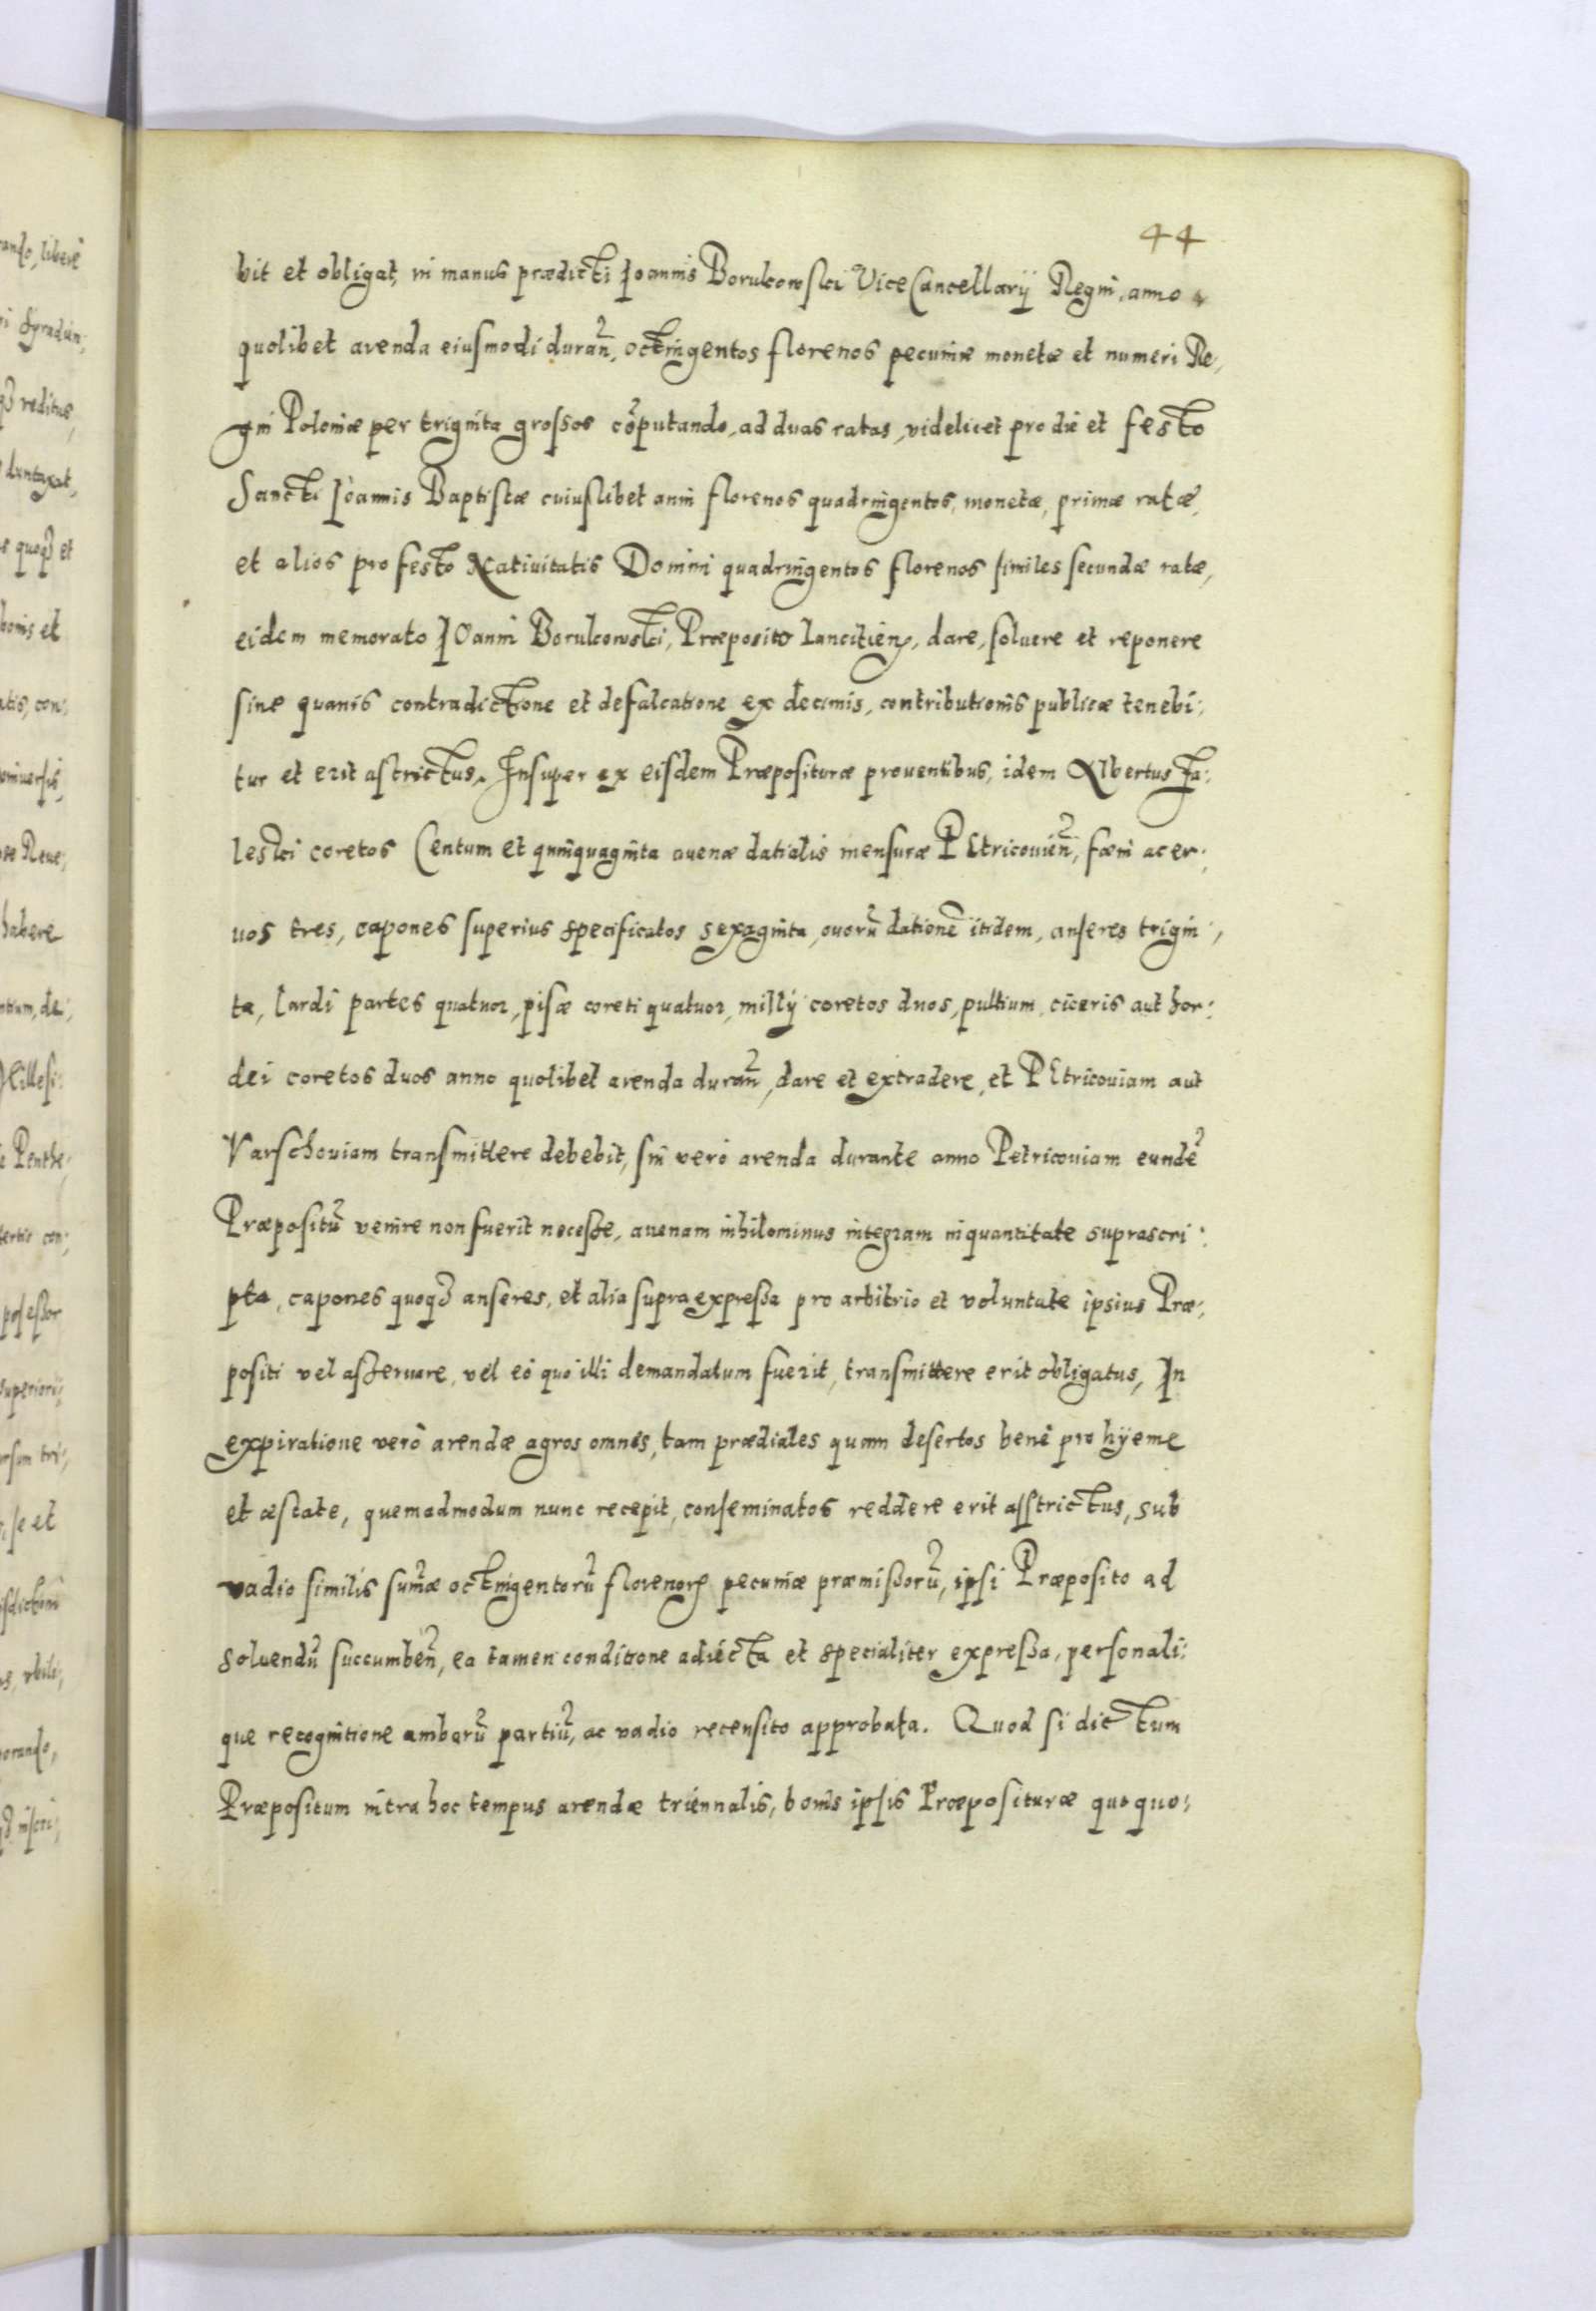 44
bit et obligat, in manus prædicti Joannis Borukowski ViceCancellarÿ Regni, anno
quolibet arenda eiusmodi durañ, octingentos florenos pecuniæ monetæ et numeri Re,
gni Poloniæ per triginta grossos cõputando, ad duas ratas, videlicet pro die et festo
Sancti Joannis Baptistæ cuiuslibet anni florenos quadringentos, monetæ, primæ ratæ,
et alios pro festo Natiuitatis Domini quadringentos florenos similes secundæ ratæ,
eidem memorato JOanni Borukowski, Præposito Lancitień, dare, soluere et reponere
sine quauis contradictione et defalcatione ex decimis, contributionis publicæ tenebi:
tur et erit astrictus. Insuper ex eisdem Præposituræ prouentibus, idem Albertus Za:
leski coretos Centum et quinquaginta auenæ datialis mensuræ PEtricouieñ, fæni acer:
uos tres, capones superius specificatos sexaginta, ouorũ datione itidem, anseres trigin,
ta, lardi partes quatuor, pisæ coreti quatuor, milÿ coretos duos, pultium, ciceris aut hor:
dei coretos duos anno quolibet arenda durañ, dare et extradere, et PEtricouiam aut
Varschouiam transmittere debebit, sin verò arenda durante anno Petricouiam eundẽ
Præpositũ venire non fuerit necesse, auenam nihilominus integram in quantitate suprascri:
pta, capones quoqȝ anseres, et alia supra expressa pro arbitrio et voluntate ipsius Præ:
positi vel asseruare, vel eò quo illi demandatum fuerit, transmittere erit obligatus, In
expiratione verò arendæ agros omnes, tam prædiales quam desertos benè pro hÿeme
et æstate, quemadmodum nunc recepit, conseminatos reddere erit asstrictus, sub
vadio similis sum̃æ octingentorũ florenorũ pecuniæ præmissorũ, ipsi Præposito ad
soluendũ succumbeñ, ea tamen conditione adiecta et specialiter expressa, personali:
que recognitione ambarũ partiũ, ac vadio recensito approbata. Quod si dictum
Præpositum intra hoc tempus arendæ triennalis, bonis ipsis Præposituræ quoquo: